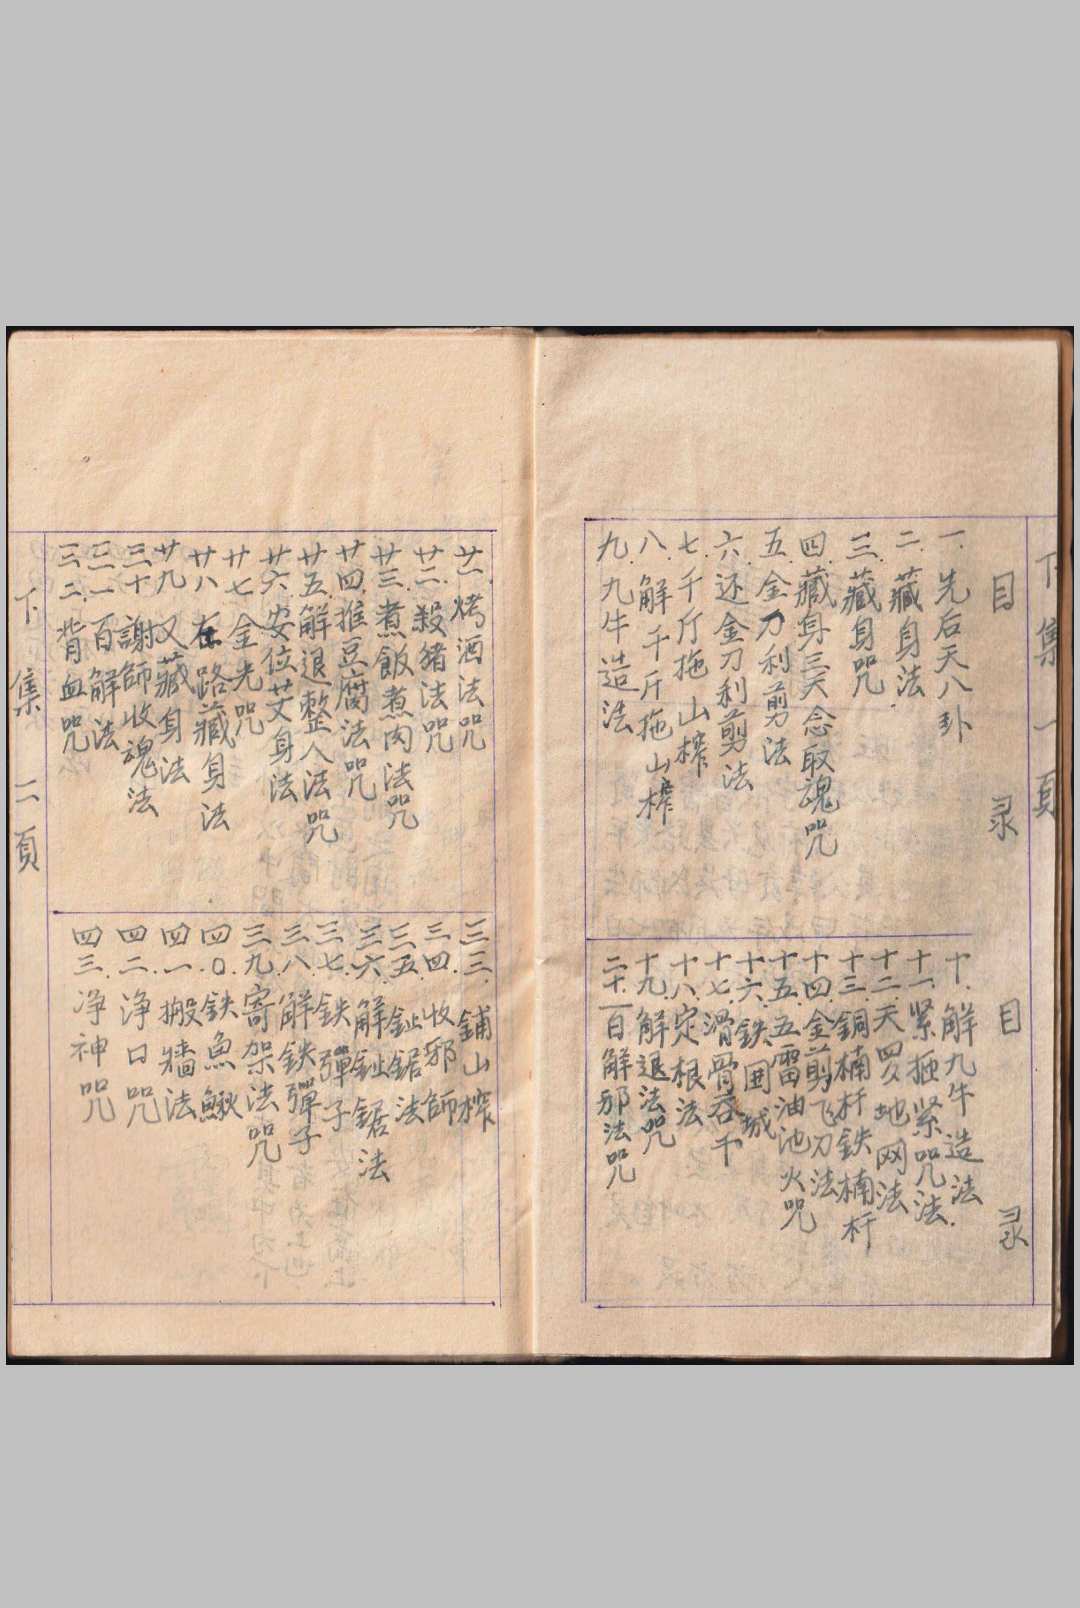 下集 一頁
目录
一.先后天八卦
二.藏身法.
三.藏身咒
四.藏身三天念取魂咒
五.金刀利剪法
六.还金刀利剪法
七.千斤拖山榨
八.解千斤拖山榨
九.九牛造法
目录
十.解九牛造法
十一.紧振紧咒法.
十二.天罗地网法
十三.銅楠杆鉄楠杆
十四.金剪飞刀法
十五.五雷油池火咒
十六.鉄囲城
十七.滑骨吞千
十八.定根法
十九.解退法咒
二十.一百解邪法咒
廿一.烤酒法咒
廿二.殺豬法咒
廿三.煮飯煮肉法咒
廿四.推豆腐法咒
廿五.解退整人法咒
廿六.安位艾身法
廿七.金光咒
廿八.在路藏身法
廿九.又藏身法
三十.謝師收魂法
三一.百解法
三二.背血咒
三三.鋪山榨
三四.收邪師
三五.鉯鋸法
三六.解鉯鋸法
三七.鉄彈子
三八.解鉄彈子
三九.寄架法咒
四〇.鉄魚鰍
四一.搬墙法
四二.净口咒
四三.净神咒
下集 二頁